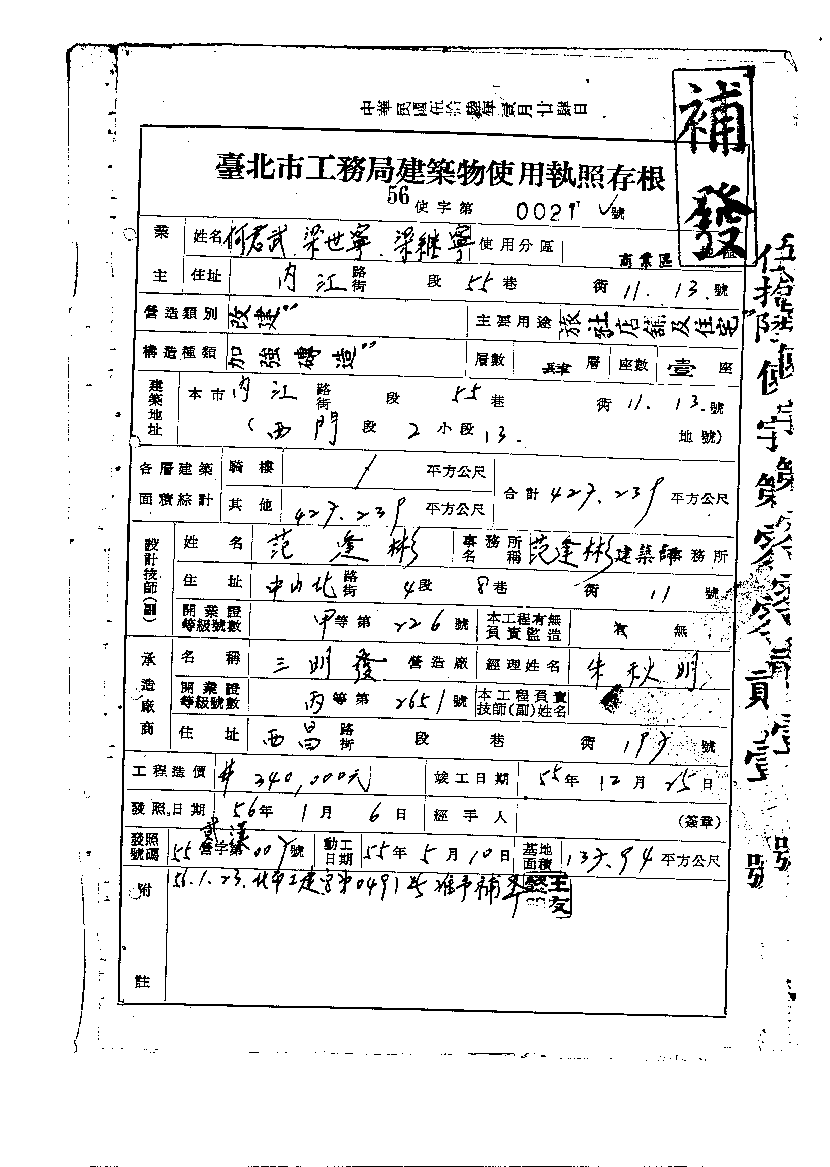 補發
臺北市工務局建築物使用執照存根
56使字第 0021 號
業主 姓名 何君武 梁世寧 梁繼寧 使用分區 商業區
住址 內江 路街 段 55 巷 街 11. 13. 號
營造類別 改建 主要用途 旅社店舖及住宅
構造種類 加強磚造 層數 層 座數 壹 座
建築地址 本市 內江 路街 段 55 巷 街 11. 13. 號
(西門 段 2 小段 13. 地號)
各層建築面積綜計 騎樓 / 平方公尺 合計 427.239 平方公尺
其他 427.239 平方公尺
設計技師(副) 姓名 范逢彬 事務所名稱 范逢彬建築師事務所
住址 中山北 路街 4段 8巷 街 11 號
開業證等級號數 甲等第 226 號 本工程有無負責監造 有 無
承造廠商 名稱 三明發 營造廠 經理姓名 朱秋明
開業證等級號數 丙等第 2651 號 本工程負責技師(副)姓名
住址 西昌 路街 段 巷 街 197 號
工程造價 # 340,000元 竣工日期 55年 12月 25日
發照日期 56年 1月 6日 經手人 (簽章)
發照號碼 55 營字第 007 號 動工日期 55年 5月 10日 基地面積 137.94 平方公尺
附註 56.1.23.北市工建字第0491號准予補發